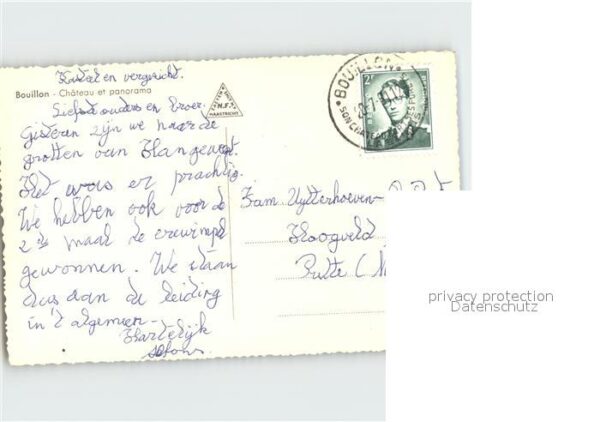 Kasteel en vergezicht.
Bouillon - Château et panorama
Liefste ouders en broer.
Gisteren zijn we naar de
grotten van Han geweest.
Het was er prachtig.
We hebben ook voor de
2de maal de erewimpel
gewonnen. We staan
dus aan de leiding
in 't algemeen
Hartelijk
N.F.
MAASTRICHT
2F
BOUILLON
SON CHATEAU
Fam Uytterhoeven
Hoogveld
Putte (
privacy protection
Datenschutz